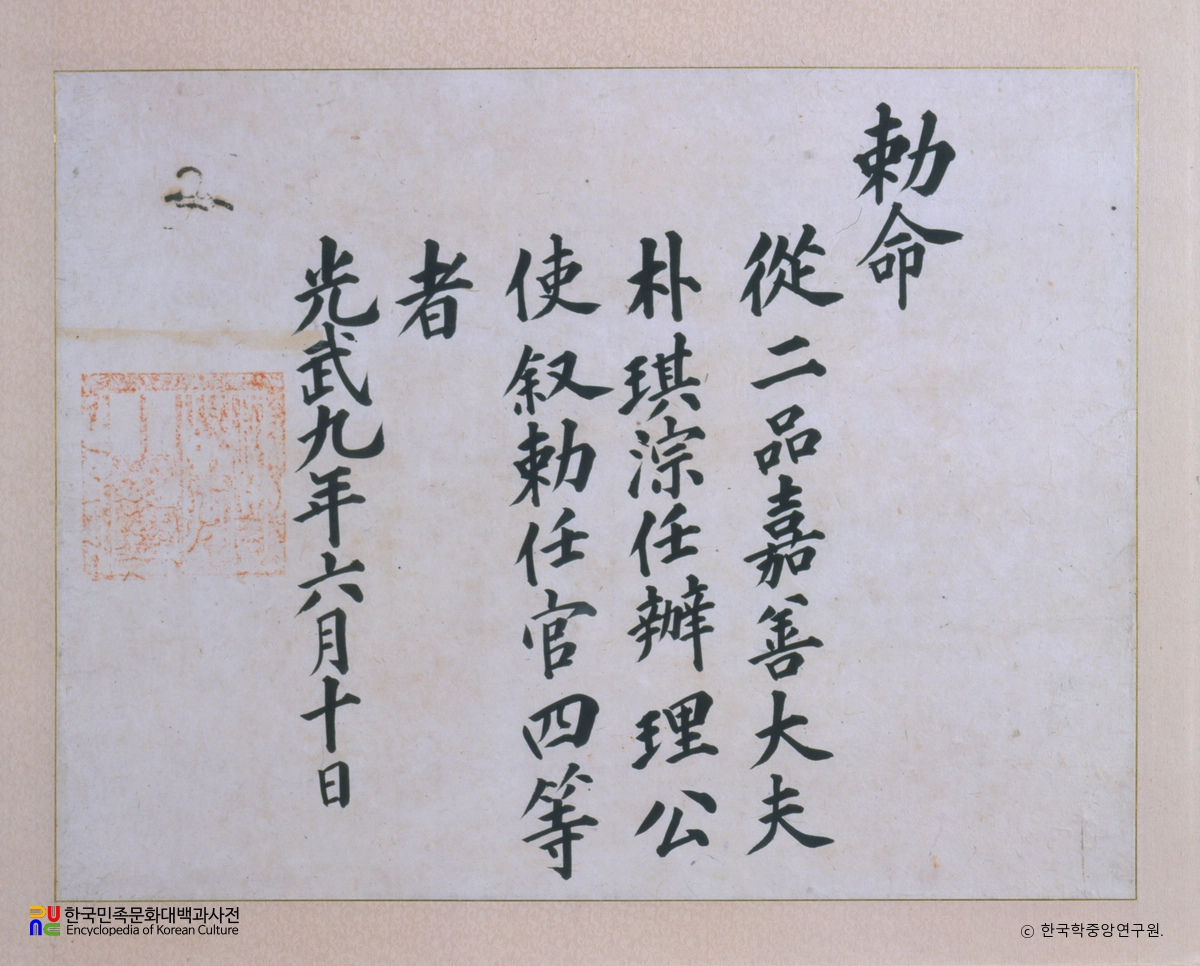 勅命
從二品嘉善大夫
朴琪淙任辦理公
使叙勅任官四等
者
光武九年六月十日
한국민족문화대백과사전
Encyclopedia of Korean Culture
ⓒ 한국학중앙연구원.